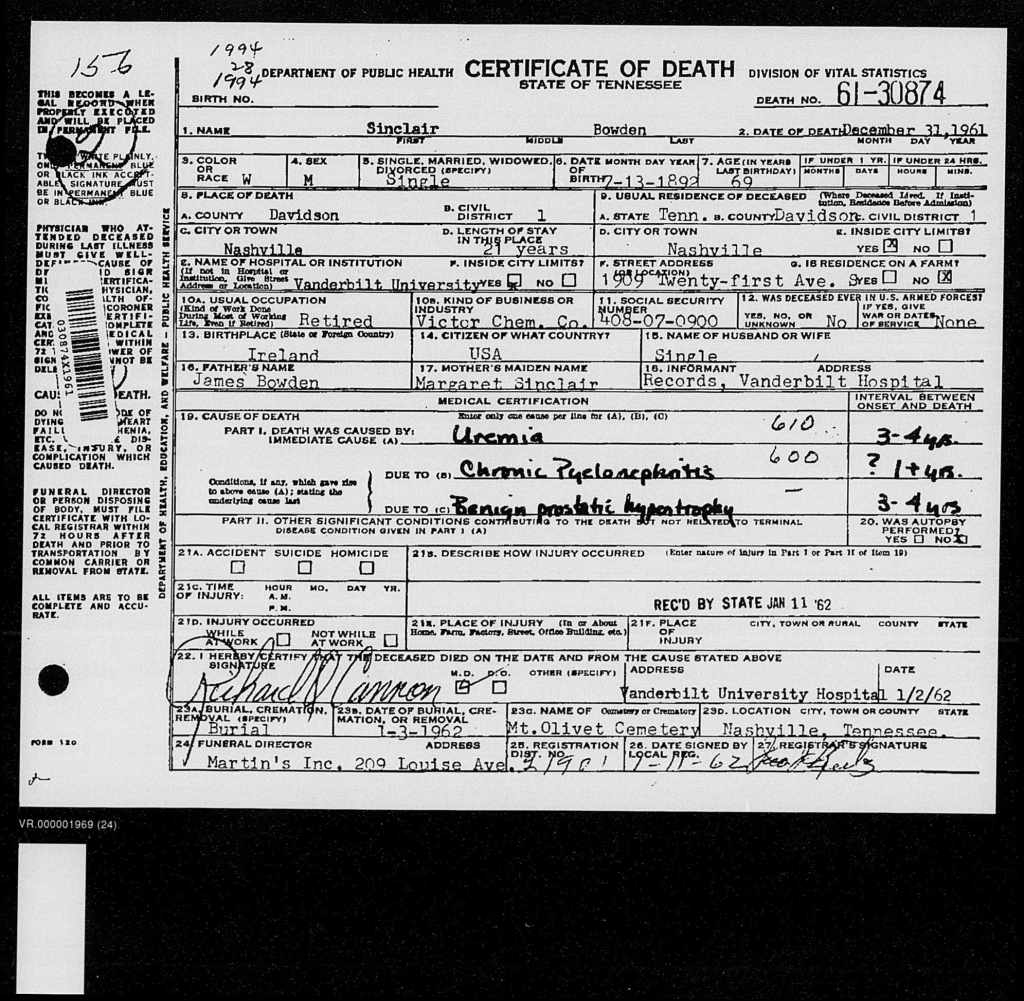 156
1994
28
1994
DEPARTMENT OF PUBLIC HEALTH CERTIFICATE OF DEATH DIVISION OF VITAL STATISTICS
STATE OF TENNESSEE
BIRTH NO. DEATH NO. 61-30874
1. NAME Sinclair Bowden 2. DATE OF DEATH December 31,1961
FIRST MIDDLE LAST MONTH DAY YEAR
3. COLOR OR RACE W 4. SEX M 5. SINGLE, MARRIED, WIDOWED, DIVORCED (SPECIFY) Single 6. DATE OF BIRTH MONTH DAY YEAR 7-13-1892 7. AGE (IN YEARS LAST BIRTHDAY) 69 IF UNDER 1 YR. MONTHS DAYS IF UNDER 24 HRS. HOURS MINS.
8. PLACE OF DEATH 9. USUAL RESIDENCE OF DECEASED (Where Deceased Lived. If Institution, Residence Before Admission)
A. COUNTY Davidson B. CIVIL DISTRICT 1 A. STATE Tenn. B. COUNTY Davidson C. CIVIL DISTRICT 1
C. CITY OR TOWN Nashville D. LENGTH OF STAY IN THIS PLACE 21 years D. CITY OR TOWN Nashville E. INSIDE CITY LIMITS? YES NO
E. NAME OF HOSPITAL OR INSTITUTION (If not in Hospital or Institution, Give Street Address or Location) Vanderbilt University F. INSIDE CITY LIMITS? YES NO F. STREET ADDRESS (OR LOCATION) 1909 Twenty-first Ave. S G. IS RESIDENCE ON A FARM? YES NO
10A. USUAL OCCUPATION (Kind of Work Done During Most of Working Life, Even if Retired) Retired 10B. KIND OF BUSINESS OR INDUSTRY Victor Chem. Co. 11. SOCIAL SECURITY NUMBER 408-07-0900 12. WAS DECEASED EVER IN U.S. ARMED FORCES? YES, NO, OR UNKNOWN No IF YES, GIVE WAR OR DATES OF SERVICE None
13. BIRTHPLACE (State or Foreign Country) Ireland 14. CITIZEN OF WHAT COUNTRY? USA 15. NAME OF HUSBAND OR WIFE Single
16. FATHER'S NAME James Bowden 17. MOTHER'S MAIDEN NAME Margaret Sinclair 18. INFORMANT ADDRESS Records, Vanderbilt Hospital
MEDICAL CERTIFICATION INTERVAL BETWEEN ONSET AND DEATH
19. CAUSE OF DEATH Enter only one cause per line for (A), (B), (C)
PART I. DEATH WAS CAUSED BY: IMMEDIATE CAUSE (A) Uremia 610 3-4 yrs.
Conditions, if any, which gave rise to above cause (A); stating the underlying cause last
DUE TO (B) Chronic Pyelonephritis 600 ? 1+ yrs.
DUE TO (C) Benign prostatic hypertrophy — 3-4 yrs
PART II. OTHER SIGNIFICANT CONDITIONS CONTRIBUTING TO THE DEATH BUT NOT RELATED TO TERMINAL DISEASE CONDITION GIVEN IN PART I (A) 20. WAS AUTOPSY PERFORMED? YES NO
21A. ACCIDENT SUICIDE HOMICIDE 21B. DESCRIBE HOW INJURY OCCURRED (Enter nature of injury in Part I or Part II of Item 19)
21C. TIME OF INJURY: HOUR MO. DAY YR. A.M. P.M.
REC'D BY STATE JAN 11 '62
21D. INJURY OCCURRED WHILE AT WORK NOT WHILE AT WORK 21E. PLACE OF INJURY (In or About Home, Farm, Factory, Street, Office Building, etc.) 21F. PLACE OF INJURY CITY, TOWN OR RURAL COUNTY STATE
22. I HEREBY CERTIFY THAT THE DECEASED DIED ON THE DATE AND FROM THE CAUSE STATED ABOVE
SIGNATURE Richard Cannon M.D. D.O. OTHER (SPECIFY) ADDRESS Vanderbilt University Hospital DATE 1/2/62
23A. BURIAL, CREMATION, REMOVAL (SPECIFY) Burial 23B. DATE OF BURIAL, CREMATION, OR REMOVAL 1-3-1962 23C. NAME OF Cemetery or Crematory Mt. Olivet Cemetery 23D. LOCATION CITY, TOWN OR COUNTY STATE Nashville, Tennessee.
24. FUNERAL DIRECTOR ADDRESS Martin's Inc. 209 Louise Ave. 25. REGISTRATION DIST. NO. 26. DATE SIGNED BY LOCAL REG. 1-11-62 27. REGISTRAR'S SIGNATURE
THIS BECOMES A LEGAL RECORD WHEN
PROPERLY EXECUTED
AND WILL BE PLACED
IN PERMANENT FILE.
WRITE PLAINLY,
PERMANENT BLUE
OR BLACK INK ACCEPTABLE. SIGNATURE MUST
BE IN PERMANENT BLUE
OR BLACK INK.
PHYSICIAN WHO ATTENDED DECEASED
DURING LAST ILLNESS
MUST GIVE WELL-
CAUSE OF
030874X1961
DEATH.
CAUSED DEATH.
FUNERAL DIRECTOR
OR PERSON DISPOSING
OF BODY, MUST FILE
CERTIFICATE WITH LOCAL REGISTRAR WITHIN
72 HOURS AFTER
DEATH AND PRIOR TO
TRANSPORTATION BY
COMMON CARRIER OR
REMOVAL FROM STATE.
ALL ITEMS ARE TO BE
COMPLETE AND ACCURATE.
DEPARTMENT OF HEALTH, EDUCATION, AND WELFARE - PUBLIC HEALTH SERVICE
FORM 120
VR.000001969 (24)